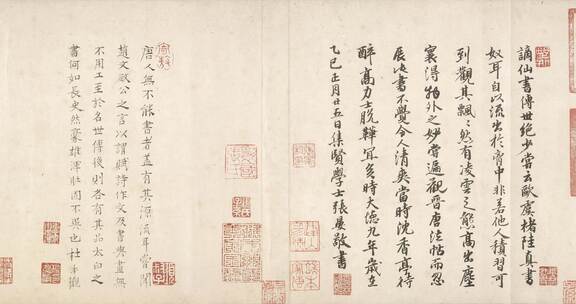 謫仙書傳世絕少嘗云歐虞褚陸真書
奴耳自以流出於胷中非若他人積習可
到觀其飄〻然有凌雲之態高出塵
寰得物外之妙嘗遍觀晉唐法帖而忽
展此書不覺令人清爽當時沈香亭待
醉高力士脫鞾冝矣時大德九年歲在
乙巳正月廿五日集賢學士張晏敬書
唐人無不能書者蓋有其源流耳嘗聞
趙文敏公之言以謂賦詩作文及書與畫無
不用工至於名世傳後則各有其品太白之
書何如長史然豪雄渾壯固不異也杜本觀